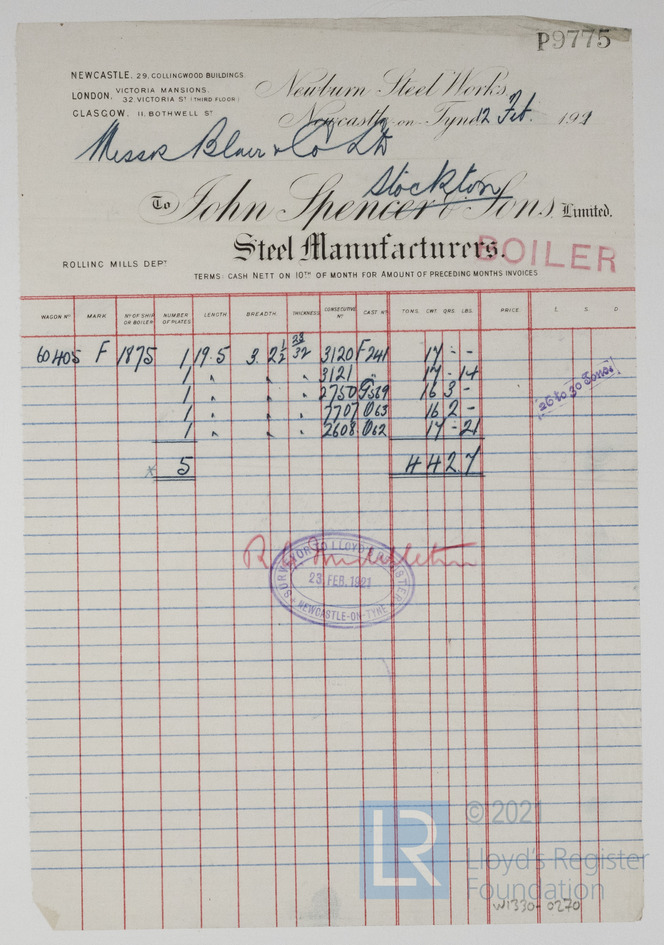 P9775
NEWCASTLE. 29, COLLINGWOOD BUILDINGS.
LONDON. VICTORIA MANSIONS, 32 VICTORIA ST (THIRD FLOOR)
GLASGOW. 11. BOTHWELL ST
Newburn Steel Works,
Newcastle-on-Tyne 12 Feb. 1921
Messrs Blair & Co Ltd
Stockton
To John Spencer & Sons, Limited.
Steel Manufacturers.
BOILER
ROLLING MILLS DEPT
TERMS: CASH NETT ON 10TH OF MONTH FOR AMOUNT OF PRECEDING MONTHS INVOICES
WAGON No MARK No OF SHIP OR BOILER NUMBER OF PLATES LENGTH. BREADTH. THICKNESS CONSECUTIVE No CAST No TONS. CWT. QRS. LBS. PRICE. £ S. D
60405 F 1875 1 19.5 3. 2 1/2 23/32 3120 F241 17 - -
1 " " " 3121 " 17 - 14
1 " " " 2750 G569 16 3 -
1 " " " 7707 O63 16 2 -
1 " " " 2608 O62 17 - 21
26 to 30 Tons
* 5 4 4 2 7
R. Middleton
SURVEYOR TO LLOYD'S REGISTER
23. FEB. 1921
NEWCASTLE-ON-TYNE
LR
© 2021
Lloyd's Register
Foundation
W1330-0270